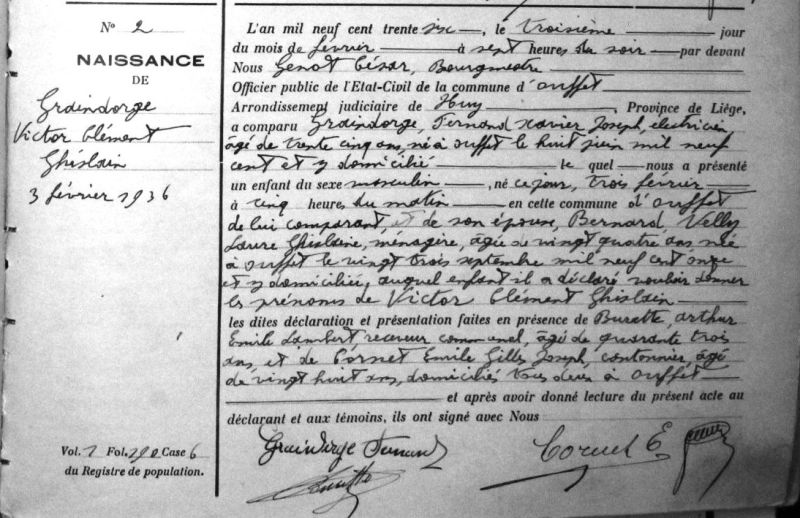 N° 2
NAISSANCE
DE
Graindorge
Victor Clément
Ghislain
3 février 1936
Vol. 2 Fol. 290 Case 6
du Registre de population.
L'an mil neuf cent trente six, le troisième jour
du mois de février à sept heures du soir par devant
Nous Genot César, Bourgmestre
Officier public de l'Etat-Civil de la commune d'Ouffet
Arrondissement judiciaire de Huy, Province de Liége,
a comparu Graindorge, Fernand Xavier Joseph, électricien
âgé de trente cinq ans, né à Ouffet le huit juin mil neuf
cent et y domicilié lequel nous a présenté
un enfant du sexe masculin, né ce jour, trois février
à cinq heures du matin en cette commune d'Ouffet
de lui comparant, et de son épouse, Bernard Nelly
Laure Ghislaine, ménagère, âgée de vingt quatre ans, née
à Ouffet le vingt trois septembre mil neuf cent onze
et y domiciliée, auquel enfant il a déclaré vouloir donner
les prénoms de Victor Clément Ghislain
les dites déclaration et présentation faites en présence de Burette, Arthur
Emile Lambert, receveur communal, âgé de quarante trois
ans et de Cornet Emile Gilles Joseph, cantonnier, âgé
de vingt huit ans, domiciliés tous deux à Ouffet
et après avoir donné lecture du présent acte au
déclarant et aux témoins, ils ont signé avec Nous
Graindorge Fernand Cornet E
Burette